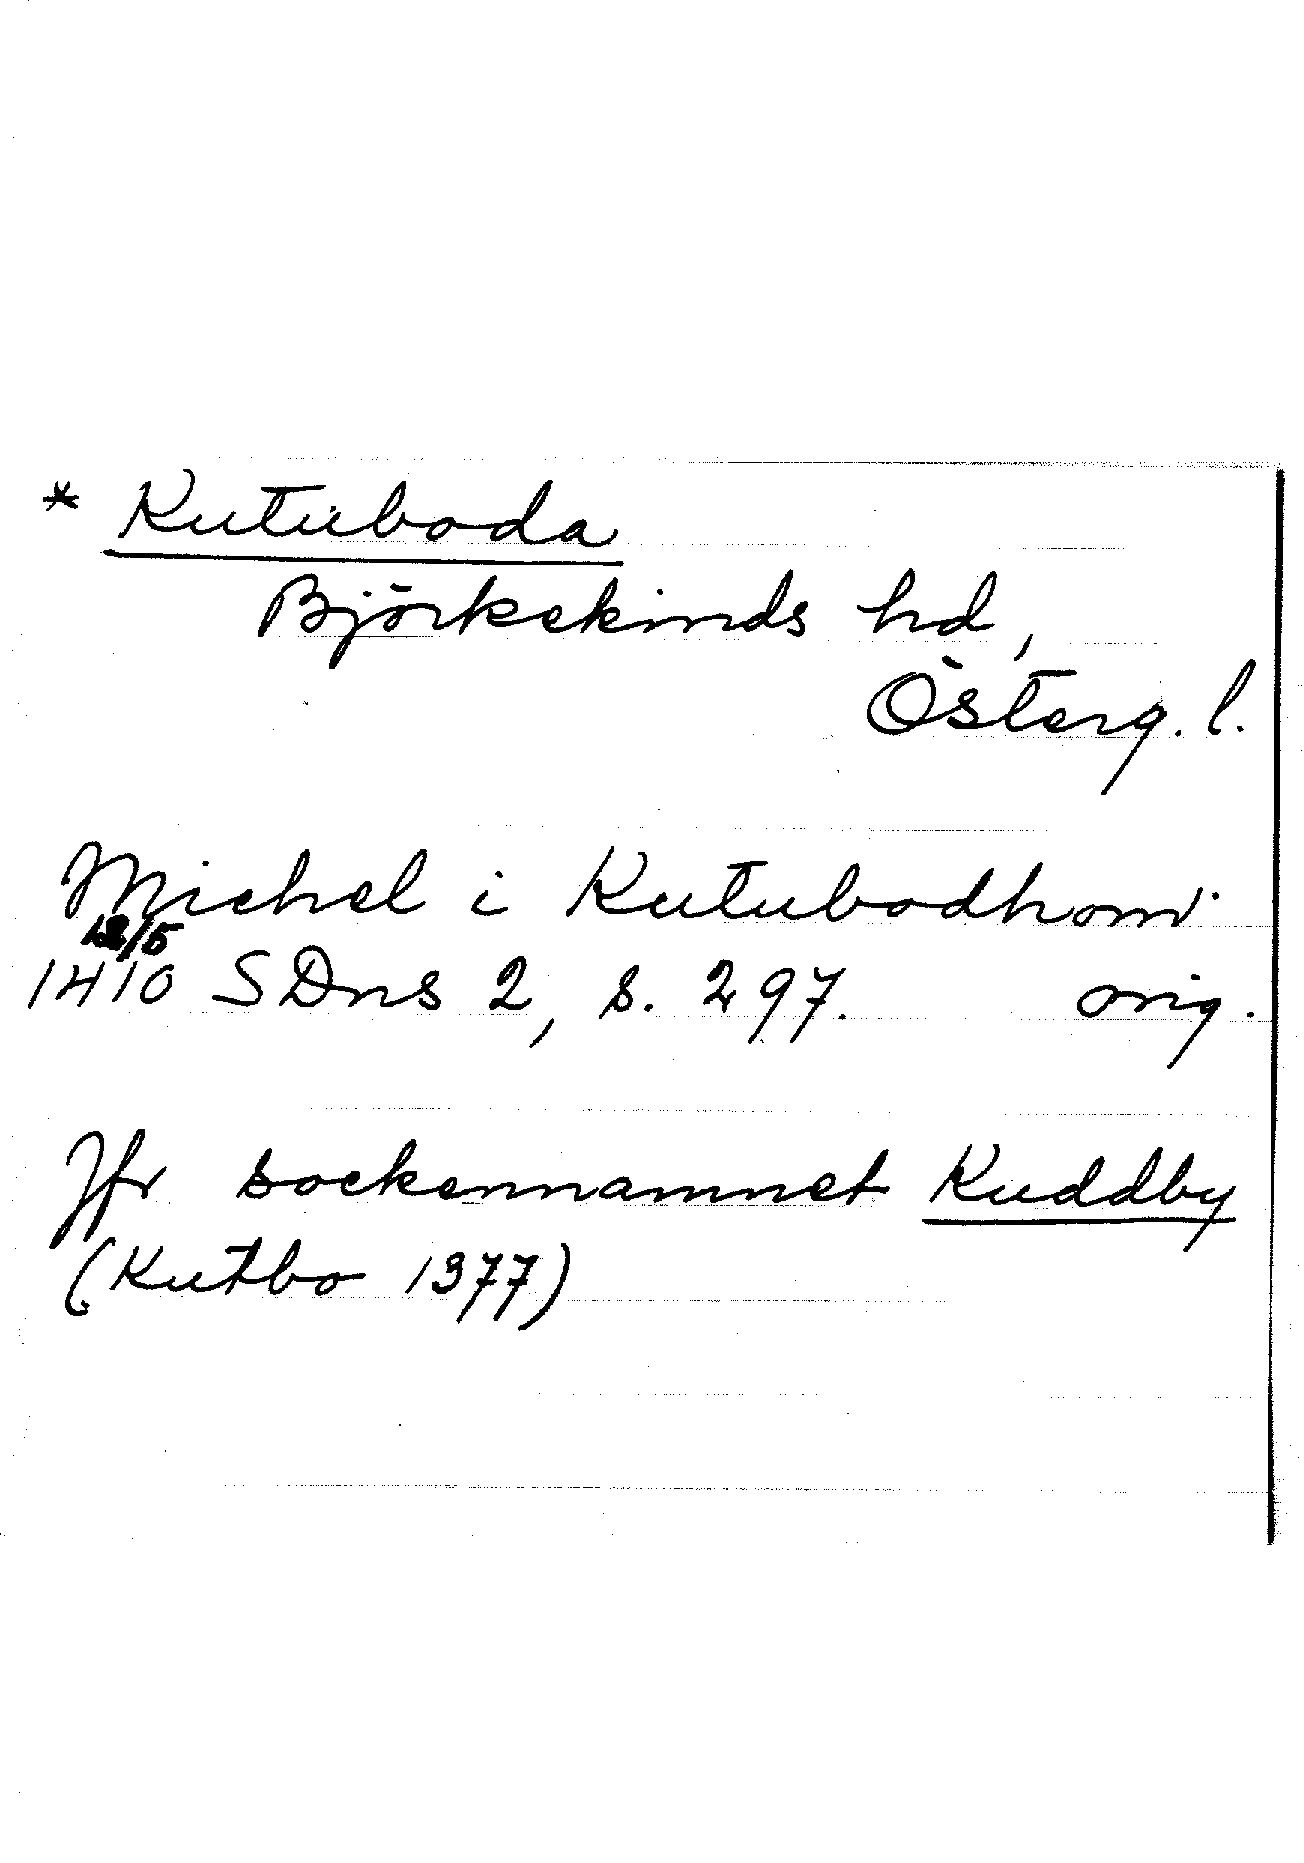 * Kutuboda
Björkekinds hd,
Österg. l.
Michel i Kutubodhom
12/5
1410 SDns 2, s. 297. orig.
Jfr sockennamnet Kuddby
(Kutbo 1377)